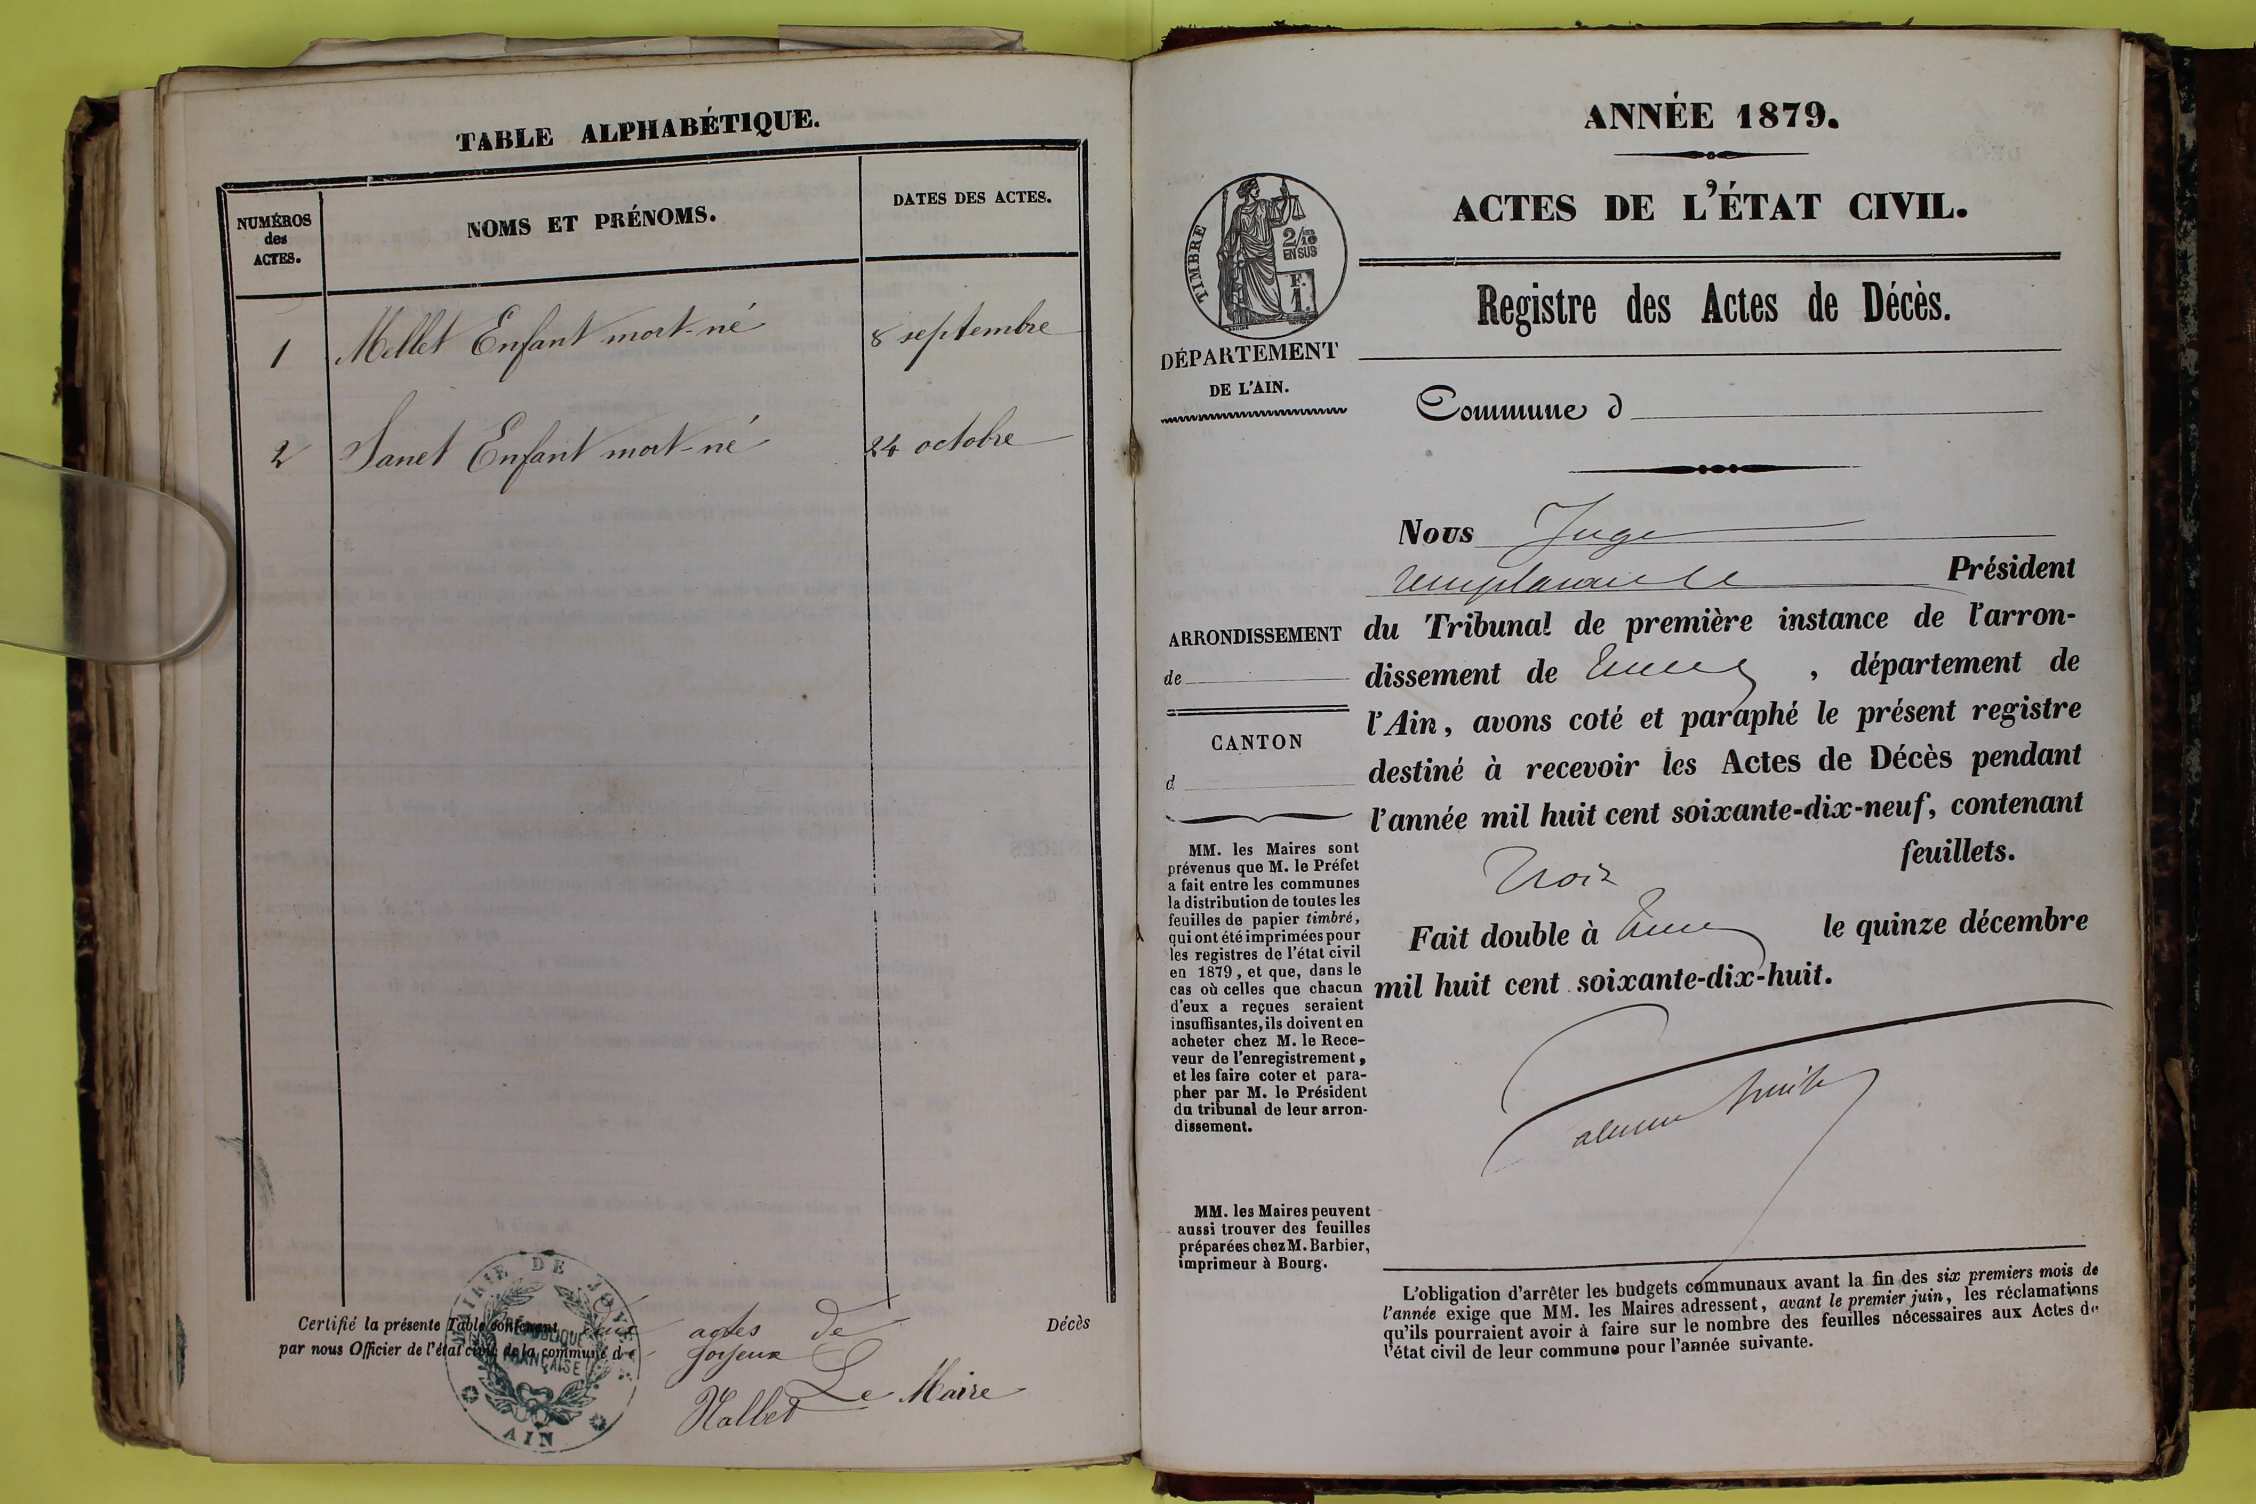 TABLE ALPHABÉTIQUE.
NUMÉROS
des
ACTES.
NOMS ET PRÉNOMS.
DATES DES ACTES.
1 Mellet Enfant mort-né 8 septembre
2 Janet Enfant mort-né 24 octobre
Certifié la présente Table contenant deux actes de Décès
par nous Officier de l'état civil de la commune de Joyeux
Le Maire
MAIRIE DE JOYEUX
RÉPUBLIQUE
FRANÇAISE
AIN
ANNÉE 1879.
ACTES DE L'ÉTAT CIVIL.
TIMBRE
2/10
EN SUS
F.
1.
Registre des Actes de Décès.
DÉPARTEMENT
DE L'AIN.
Commune d
Nous Juge
remplaçant le Président
du Tribunal de première instance de l'arron-
dissement de , département de
l'Ain, avons coté et paraphé le présent registre
destiné à recevoir les Actes de Décès pendant
l'année mil huit cent soixante-dix-neuf, contenant
trois feuillets.
Fait double à le quinze décembre
mil huit cent soixante-dix-huit.
ARRONDISSEMENT
de
CANTON
d
MM. les Maires sont
prévenus que M. le Préfet
a fait entre les communes
la distribution de toutes les
feuilles de papier timbré,
qui ont été imprimées pour
les registres de l'état civil
en 1879, et que, dans le
cas où celles que chacun
d'eux a reçues seraient
insuffisantes, ils doivent en
acheter chez M. le Rece-
veur de l'enregistrement,
et les faire coter et para-
pher par M. le Président
du tribunal de leur arron-
dissement.
MM. les Maires peuvent
aussi trouver des feuilles
préparées chez M. Barbier,
imprimeur à Bourg.
L'obligation d'arrêter les budgets communaux avant la fin des six premiers mois de
l'année exige que MM. les Maires adressent, avant le premier juin, les réclamations
qu'ils pourraient avoir à faire sur le nombre des feuilles nécessaires aux Actes de
l'état civil de leur commune pour l'année suivante.